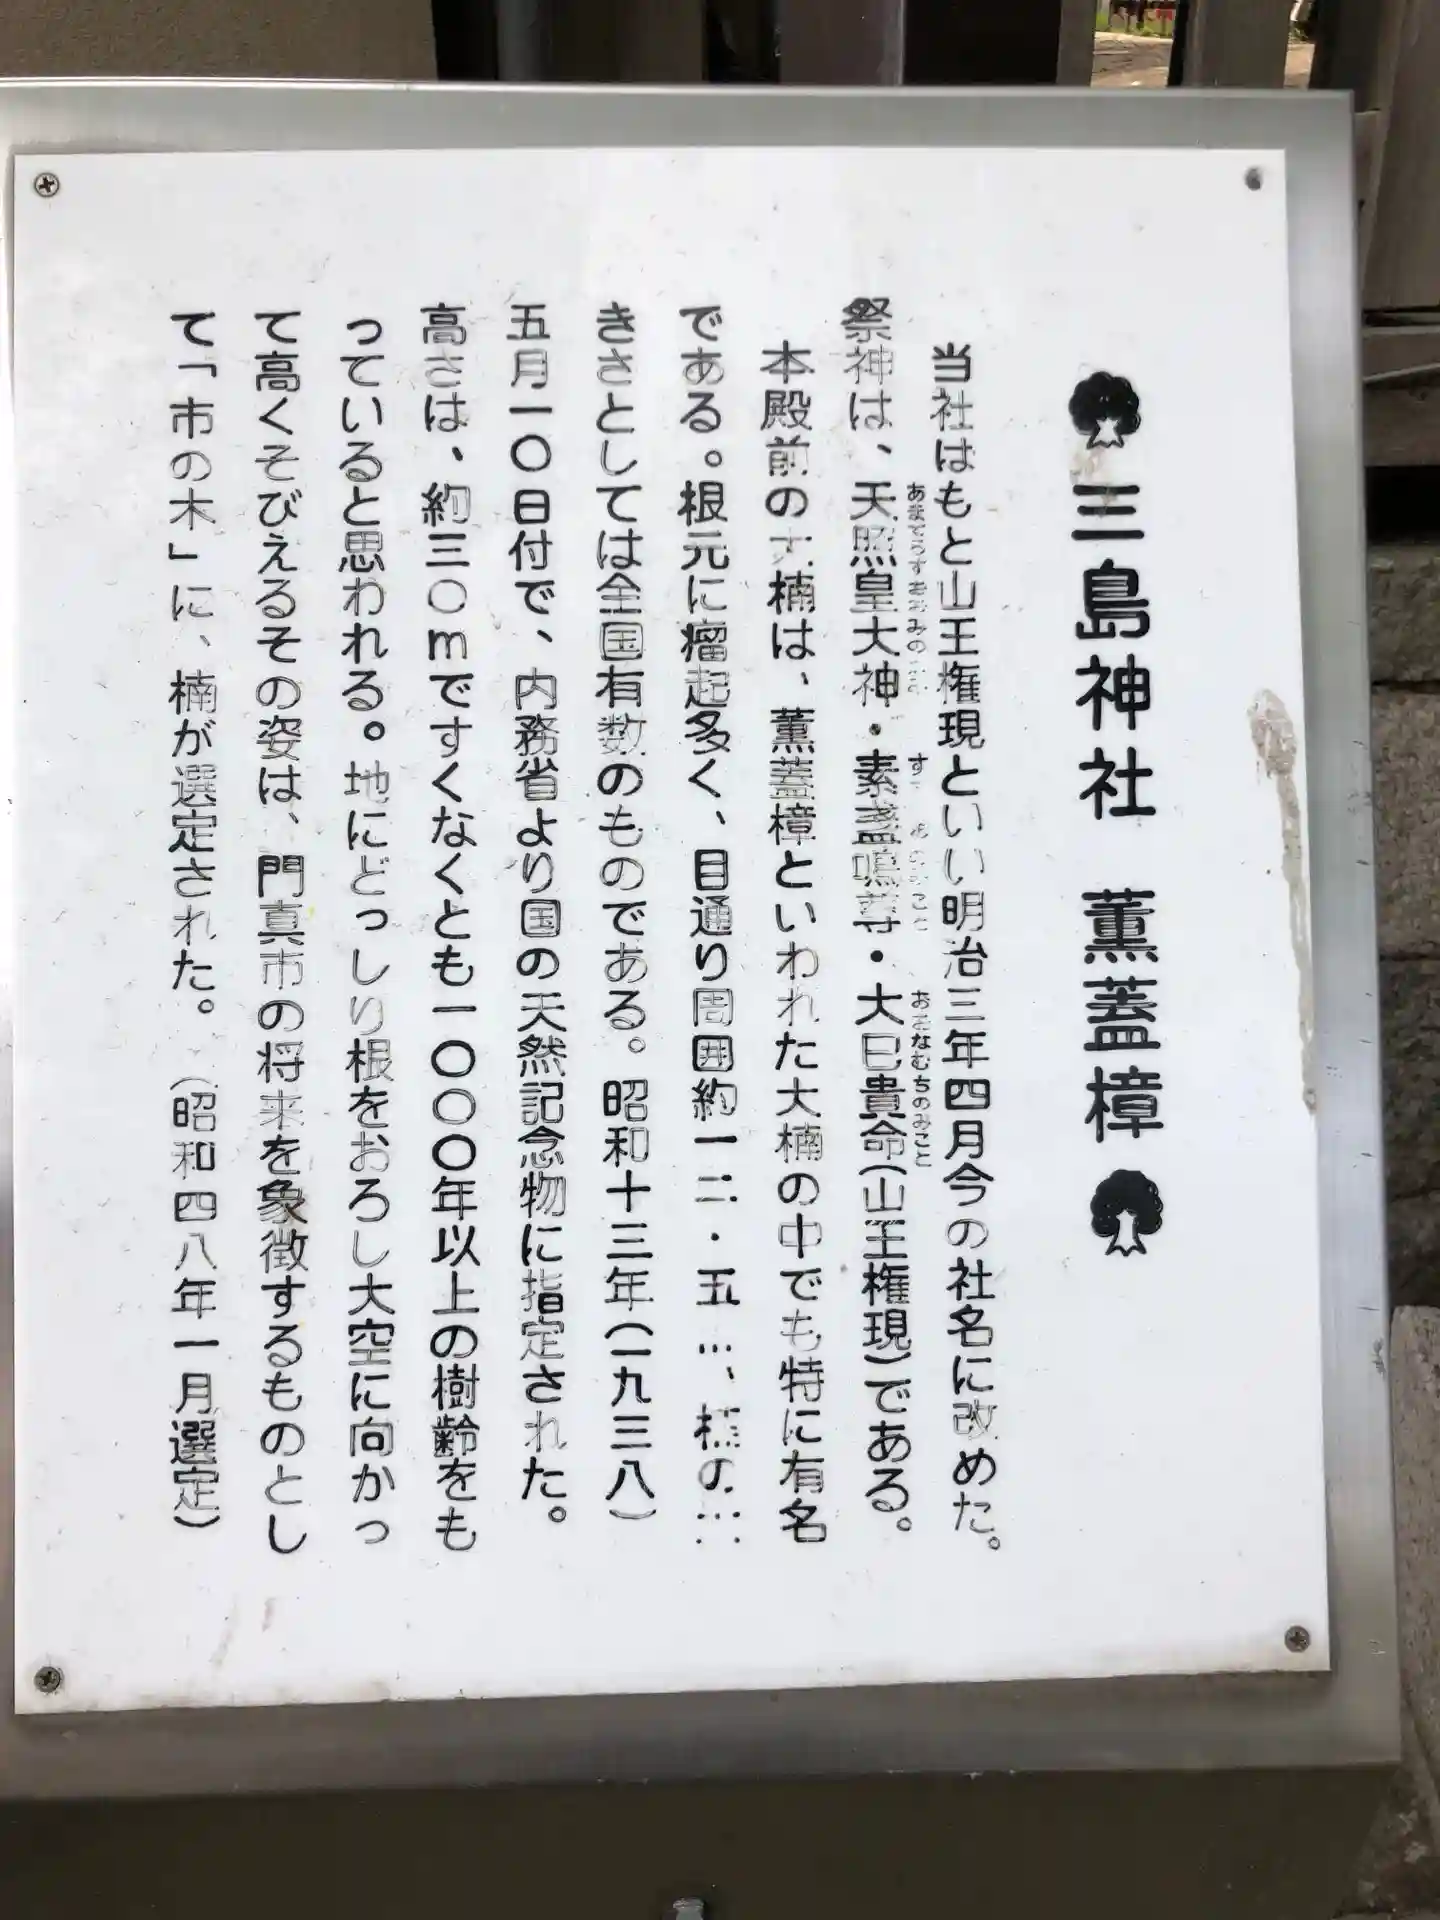 三島神社 薫蓋樟
当社はもと山王権現といい明治三年四月今の社名に改めた。
祭神は、天照皇大神・素盞嗚尊・大巳貴命(山王権現)である。
本殿前の大楠は、薫蓋樟といわれた大楠の中でも特に有名
である。根元に瘤起多く、目通り周囲約一二・五 、樟の
きさとしては全国有数のものである。昭和十三年(一九三八)
五月一〇日付で、内務省より国の天然記念物に指定された。
高さは、約三〇mですくなくとも一〇〇〇年以上の樹齢をも
っていると思われる。地にどっしり根をおろし大空に向かっ
て高くそびえるその姿は、門真市の将来を象徴するものとし
て「市の木」に、楠が選定された。(昭和四八年一月選定)